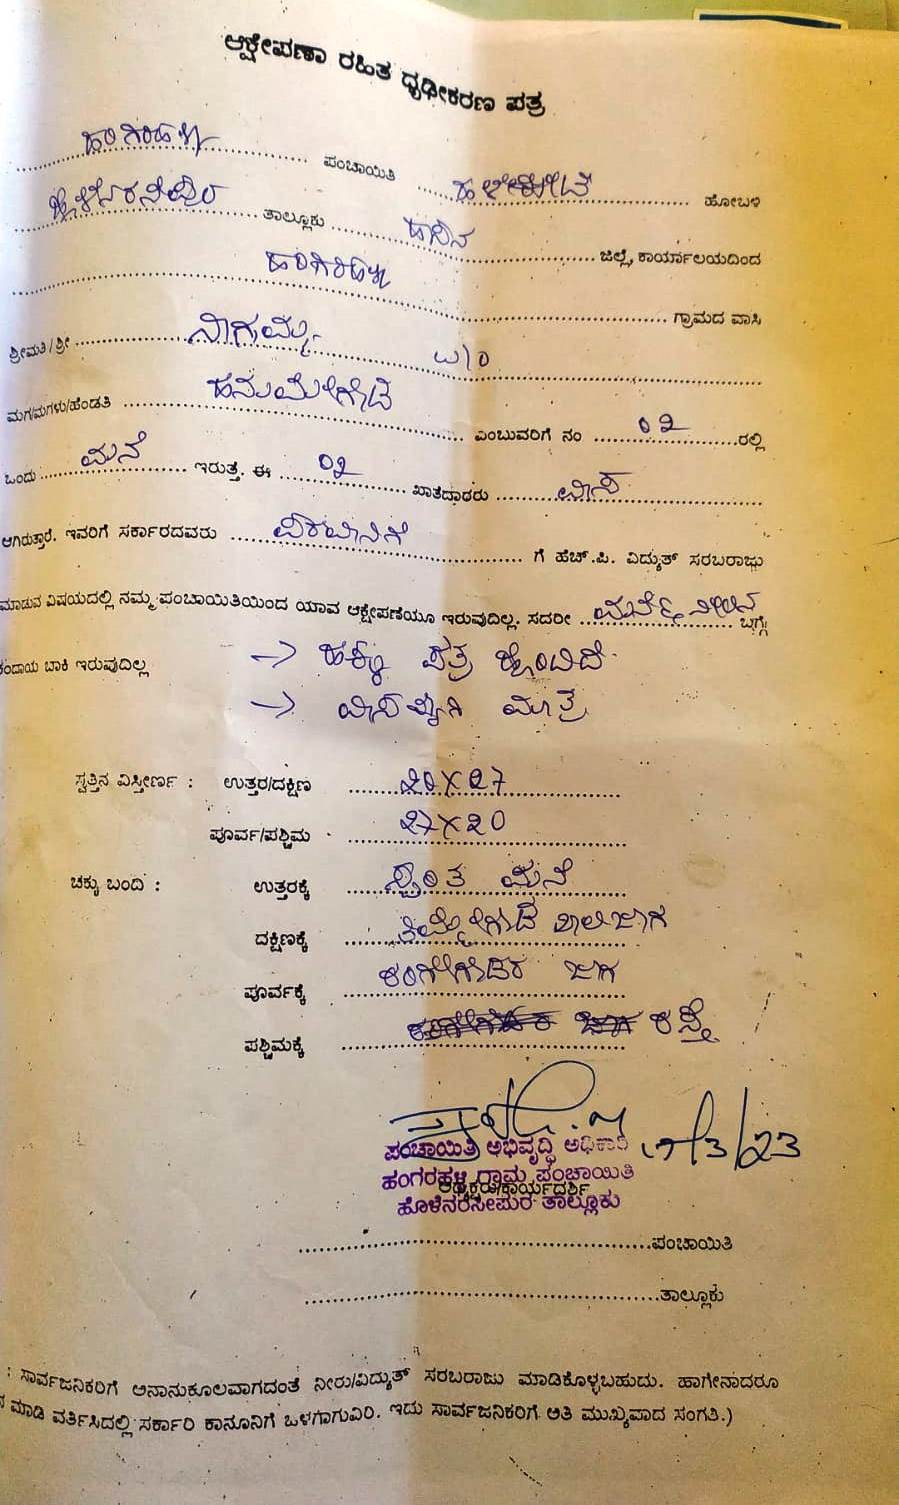 ಆಕ್ಷೇಪಣಾ ರಹಿತ ಧೃಢೀಕರಣ ಪತ್ರ
ಹಂಗರಹಳ್ಳಿ ಪಂಚಾಯಿತಿ ಹಳೇಕೋಟೆ ಹೋಬಳಿ
ಹೊಳೆನರಸೀಪುರ ತಾಲ್ಲೂಕು ಹಾಸನ ಜಿಲ್ಲೆ, ಕಾರ್ಯಾಲಯದಿಂದ
ಹಂಗರಹಳ್ಳಿ ಗ್ರಾಮದ ವಾಸಿ
ಶ್ರೀಮತಿ/ಶ್ರೀ ನಾಗಮ್ಮ
ಮಗ/ಮಗಳು/ಹೆಂಡತಿ ಹನುಮೇಗೌಡ ಎಂಬುವರಿಗೆ ನಂ ೦೨ ರಲ್ಲಿ
ಒಂದು ಮನೆ ಇರುತ್ತೆ. ಈ ೦೨ ಖಾತೆದಾರರು ವಾಸ
ಆಗಿರುತ್ತಾರೆ. ಇವರಿಗೆ ಸರ್ಕಾರದವರು ಗೆ ಹೆಚ್.ಪಿ. ವಿದ್ಯುತ್ ಸರಬರಾಜು
ಮಾಡುವ ವಿಷಯದಲ್ಲಿ ನಮ್ಮ ಪಂಚಾಯಿತಿಯಿಂದ ಯಾವ ಆಕ್ಷೇಪಣೆಯೂ ಇರುವುದಿಲ್ಲ. ಸದರೀ ಬಗ್ಗೆ
ಕಂದಾಯ ಬಾಕಿ ಇರುವುದಿಲ್ಲ → ಹಕ್ಕು ಪತ್ರ ಹೊಂದಿದೆ
→ ವಾಸಕ್ಕಾಗಿ ಮಾತ್ರ
ಸ್ವತ್ತಿನ ವಿಸ್ತೀರ್ಣ : ಉತ್ತರ/ದಕ್ಷಿಣ ೨೦X೨೭
ಪೂರ್ವ/ಪಶ್ಚಿಮ ೨೭X೨೦
ಚಕ್ಕು ಬಂದಿ : ಉತ್ತರಕ್ಕೆ ಸ್ವಂತ ಮನೆ
ದಕ್ಷಿಣಕ್ಕೆ ತಿಮ್ಮೇಗೌಡ ಖಾಲಿಜಾಗ
ಪೂರ್ವಕ್ಕೆ ರಂಗೇಗೌಡರ ಜಾಗ
ಪಶ್ಚಿಮಕ್ಕೆ ರಸ್ತೆ
ಪಂಚಾಯಿತಿ ಅಭಿವೃದ್ಧಿ ಅಧಿಕಾರಿ
ಹಂಗರಹಳ್ಳಿ ಗ್ರಾಮ ಪಂಚಾಯಿತಿ
ಅಧ್ಯಕ್ಷರು/ಕಾರ್ಯದರ್ಶಿ
ಹೊಳೆನರಸೀಪುರ ತಾಲ್ಲೂಕು
ಪಂಚಾಯಿತಿ
ತಾಲ್ಲೂಕು
: ಸಾರ್ವಜನಿಕರಿಗೆ ಅನಾನುಕೂಲವಾಗದಂತೆ ನೀರು/ವಿದ್ಯುತ್ ಸರಬರಾಜು ಮಾಡಿಕೊಳ್ಳಬಹುದು. ಹಾಗೇನಾದರೂ
ಮಾಡಿ ವರ್ತಿಸಿದಲ್ಲಿ ಸರ್ಕಾರಿ ಕಾನೂನಿಗೆ ಒಳಗಾಗುವಿರಿ. ಇದು ಸಾರ್ವಜನಿಕರಿಗೆ ಅತಿ ಮುಖ್ಯವಾದ ಸಂಗತಿ.)